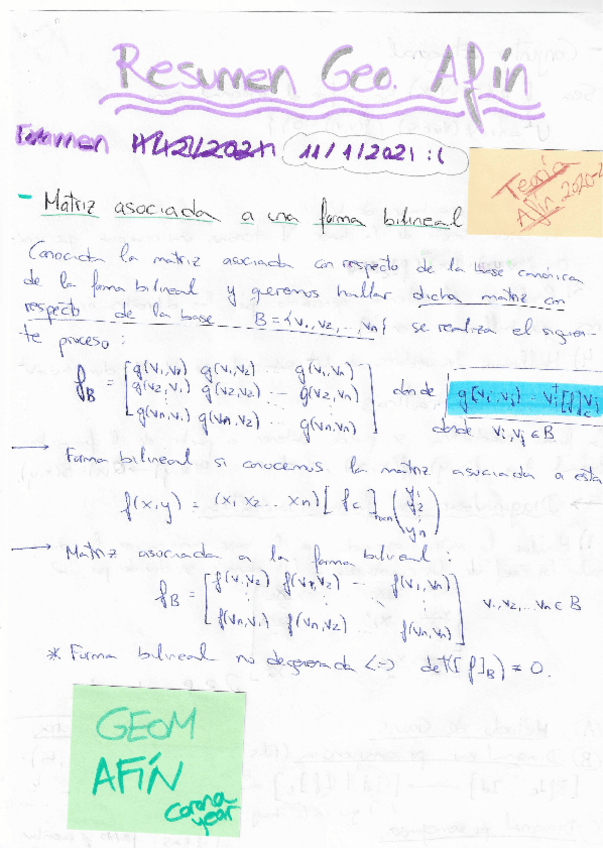 Resumen Geo. Afín
Examen 11/1/2021 :(
Teoría
Afín 2020-2
- Matriz asociada a una forma bilineal
Conocida la matriz asociada con respecto de la base canónica
de la forma bilineal y queremos hallar dicha matriz con
respecto de la base B = {v₁, v₂, ..., vn} se realiza el siguien-
te proceso:
f_B = [g(v₁,v₂) g(v₁,v₂) ... g(v₁,vn)
g(v₂,v₁) g(v₂,v₂) ... g(v₂,vn)
g(vn,v₁) g(vn,v₂) ... g(vn,vn)] donde g(vi,vj) = viᵗ[f]vj
donde vi,vj ∈ B
→ Forma bilineal si conocemos la matriz asociada a esta
f(x,y) = (x₁ x₂ ... xn) [f_c]nxn (y₁ y₂ yn)
→ Matriz asociada a la forma bilineal:
f_B = [f(v₁,v₂) f(v₁,v₂) ... f(v₁,vn)
f(vn,v₁) f(vn,v₂) ... f(vn,vn)] v₁,v₂,...vn ∈ B
* Forma bilineal no degenerada <-> det([f]_B) ≠ 0.
GEOM
AFÍN
corona
year